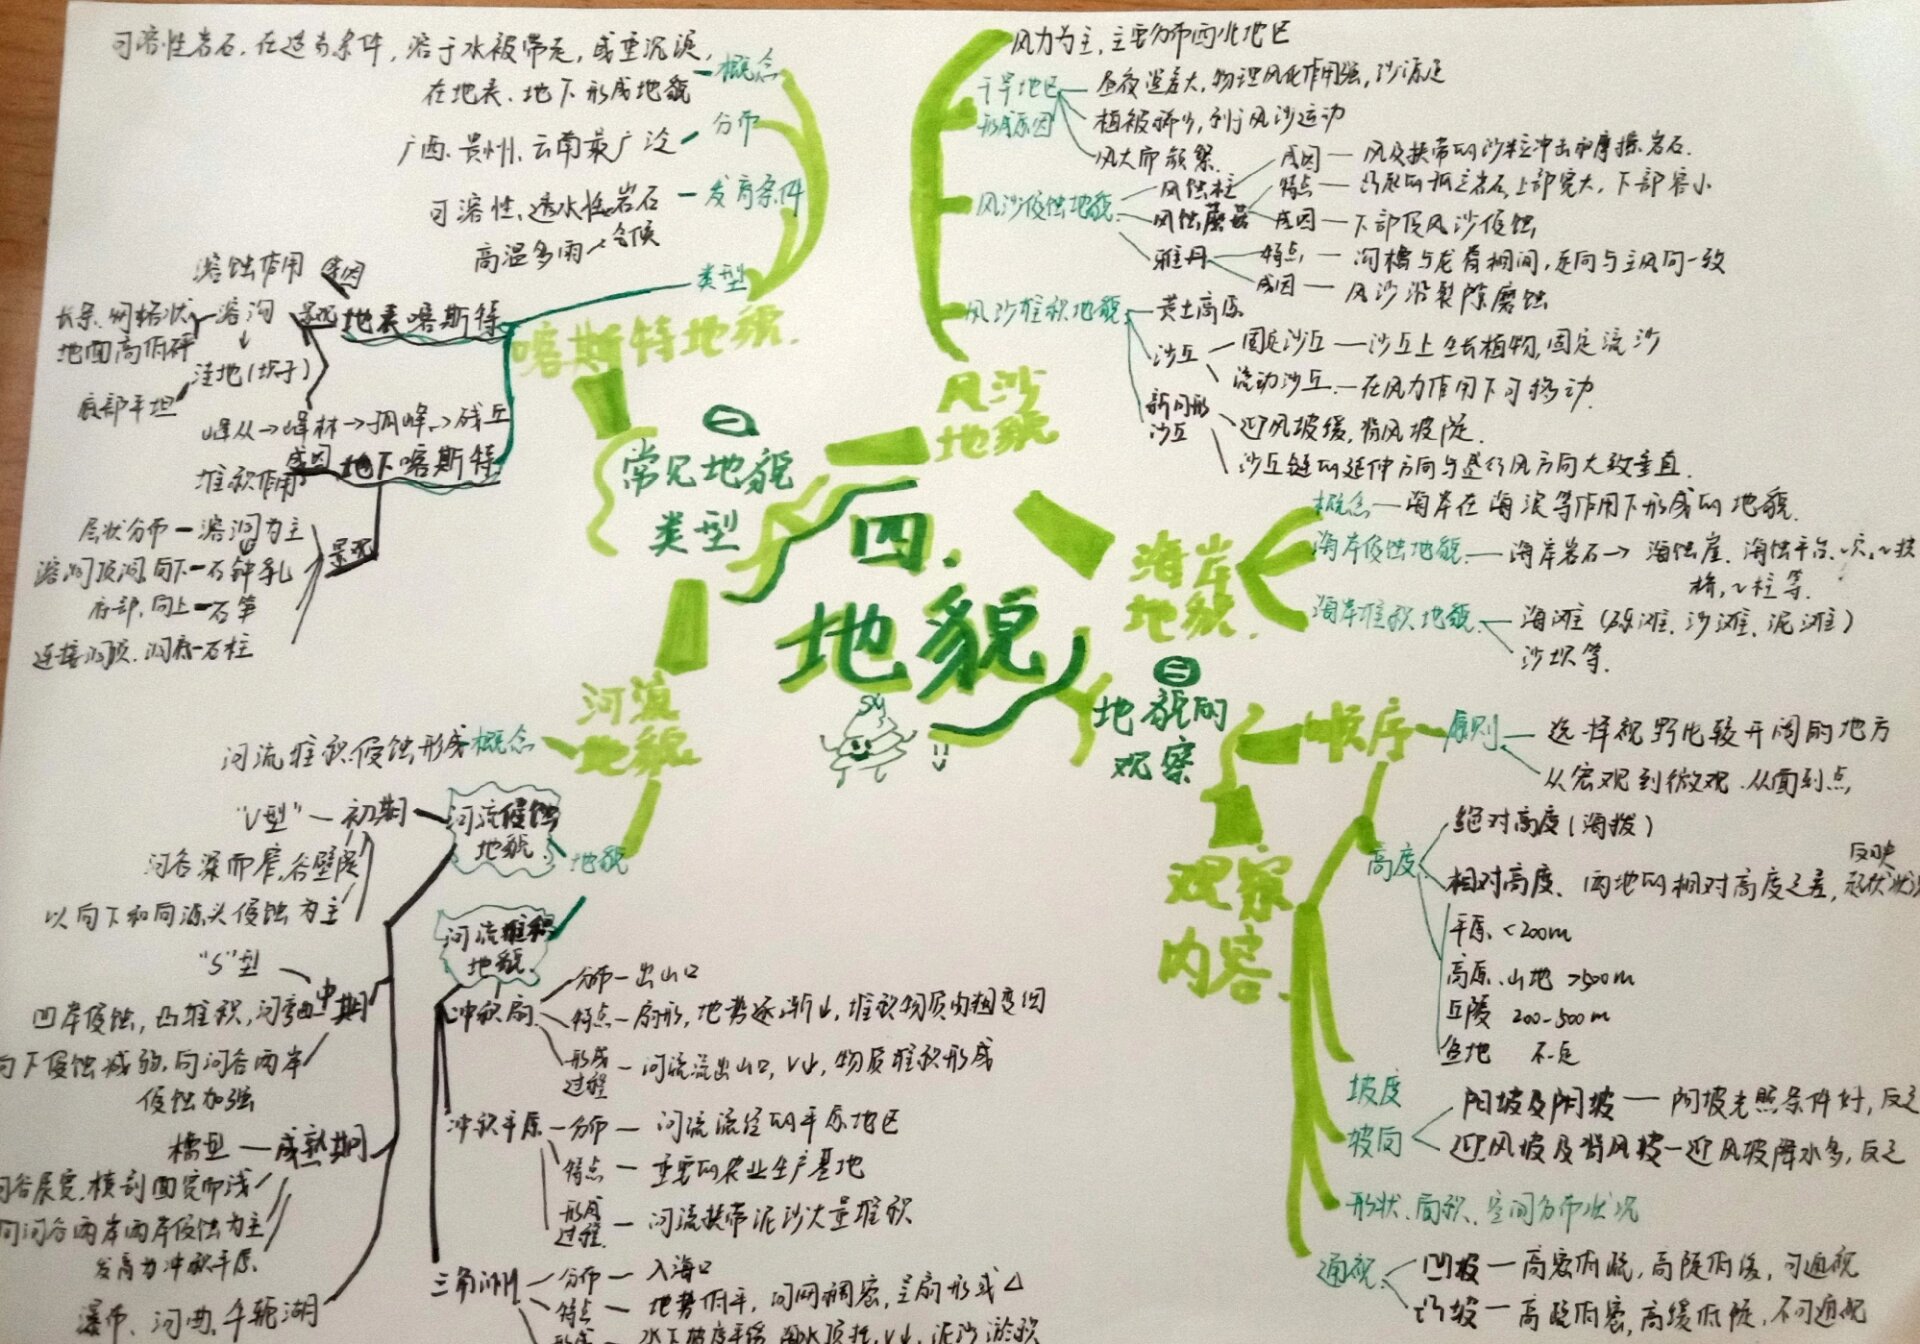 四、
地貌
㊀
常见地貌
类型
喀斯特地貌.
概念
可溶性岩石,在适当条件,溶于水被带走,或重沉淀,
在地表、地下形成地貌
分布
广西、贵州、云南最广泛
发育条件
可溶性、透水性岩石
高温多雨 气候
类型
地表喀斯特
成因
溶蚀作用
景观
溶沟
长条、网格状
地面高低
洼地(坝子)
底部平坦
峰丛→峰林→孤峰→残丘
地下喀斯特
成因
堆积作用
景观
层状分布-溶洞为主
溶洞顶洞,向下-石钟乳
底部,向上-石笋
连接洞顶、洞底-石柱
河流
地貌
概念
河流堆积侵蚀形成
地貌
河流侵蚀
地貌
初期
"V型"
河谷深而窄,谷壁陡
以向下和向源头侵蚀为主
中期
"S"型
凹岸侵蚀,凸堆积,河弯曲
向下侵蚀减弱,向河谷两岸
侵蚀加强
成熟期
槽型
河谷展宽,横剖面宽而浅
向河谷两岸两岸侵蚀为主
发育为冲积平原.
瀑布、河曲、牛轭湖
河流堆积
地貌.
冲积扇
分布-出山口
特点-扇形,地势逐渐↓,堆积物质由粗变细
形成
过程-河流流出山口,V↓,物质堆积形成
冲积平原
分布-河流流经的平原地区
特点-重要的农业生产基地
形成
过程-河流携带泥沙大量堆积
三角洲
分布-入海口
特点-地势低平,河网稠密,呈扇形或△
形成
水下坡度平缓,海水顶托,V↓,泥沙淤积
风沙
地貌
风力为主,主要分布西北地区
干旱地区
形成原因
昼夜温差大,物理风化作用强,沙源足
植被稀少,利于风沙运动
风大而频繁
风沙侵蚀地貌
风蚀柱
成因-风及携带的沙粒冲击和摩擦岩石.
风蚀蘑菇
特点-凸起的孤立岩石上部宽大,下部窄小
成因-下部受风沙侵蚀
雅丹
特点-沟槽与龙脊相间,走向与主风向一致
成因-风沙沿裂隙磨蚀
风沙堆积地貌
黄土高原
沙丘
固定沙丘-沙丘上生长植物,固定流沙
流动沙丘-在风力作用下可移动.
新月形
沙丘
迎风坡缓,背风坡陡.
沙丘链的延伸方向与盛行风方向大致垂直.
海岸
地貌.
概念-海岸在海浪等作用下形成的地貌.
海岸侵蚀地貌-海岸岩石→海蚀崖、海蚀平台、~穴、~拱
桥,~柱等.
海岸堆积地貌
海滩(砾滩、沙滩、泥滩)
沙坝等.
㊁
地貌的
观察
顺序
原则
选择视野比较开阔的地方
从宏观到微观.从面到点,
观察
内容.
高度
绝对高度(海拔)
相对高度、两地的相对高度之差,
反映
起伏状况
平原<200m
高原、山地 >500m
丘陵 200-500m
盆地 不定
坡度
坡向
阳坡及阴坡-阳坡光照条件好,反之
迎风坡及背风坡-迎风坡降水多,反之
形状、面积、空间分布状况
通视
凹坡-高密低疏,高陡低缓,可通视
凸坡-高疏低密,高缓低陡,不可通视